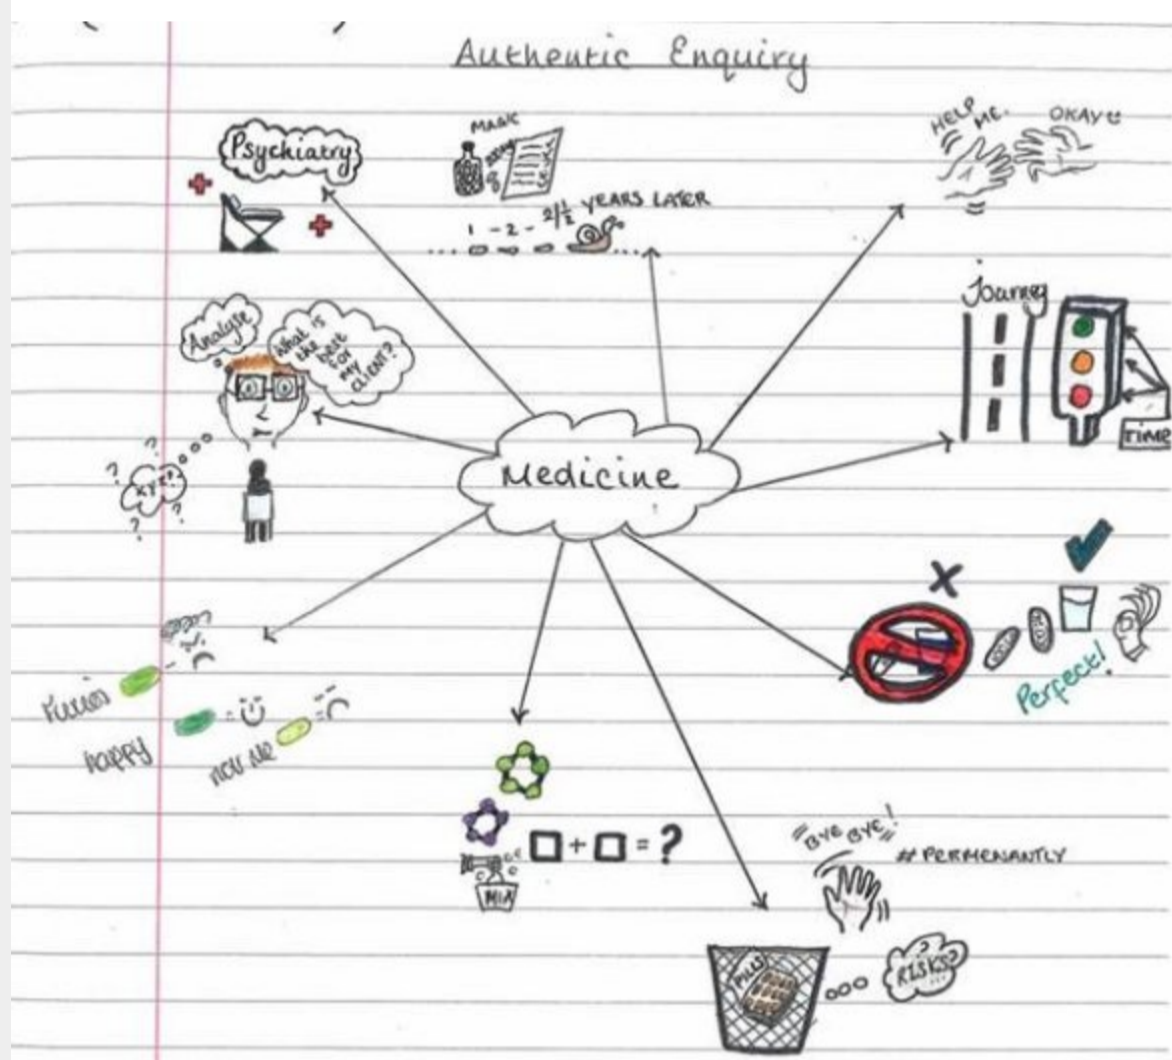 Authentic Enquiry
Psychiatry
MAGIC
1 - 2 - 2 1/2 YEARS LATER
HELP ME.
OKAY
Journey
TIME
Analyse
What is
the best
for
MY
CLIENT?
? ? ? ?
Medicine
X
Perfect!
happy
= =
MIX
+ = ?
"BYE BYE!"
# PERMENANTLY
PILLS
RISKS?